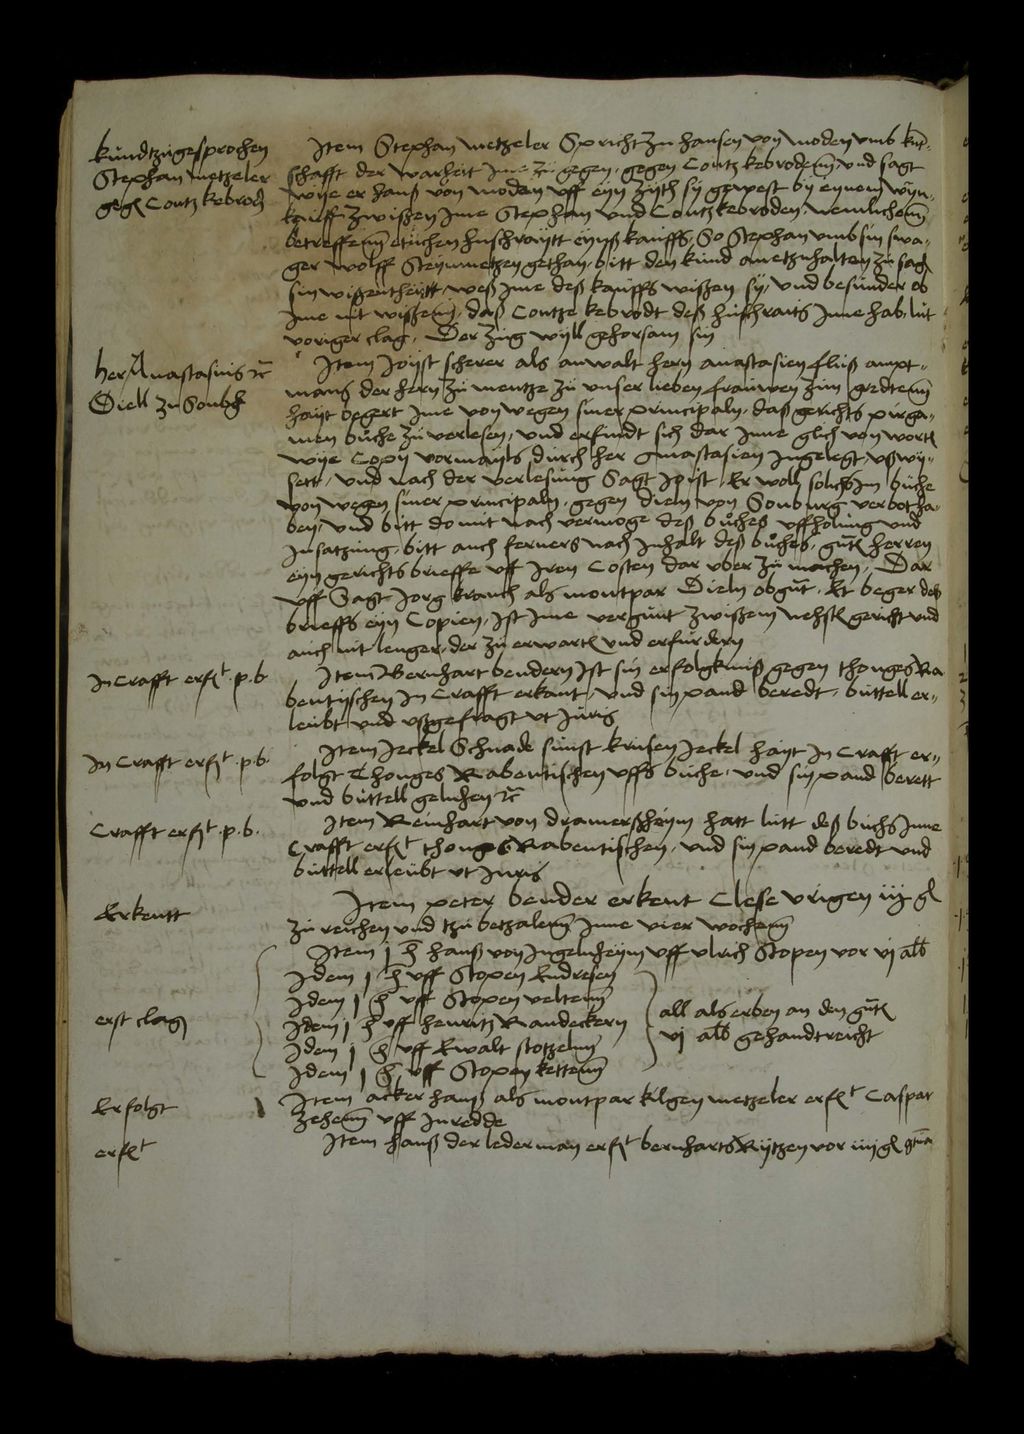 kundtzugesprochen
Stephan metzeler
gegen Contz kebrod
Item Stephan metzeler Spricht zu hansen von moden umb kun-
schafft der warheit Ime zu gegen, gegen Contz kebroden und sagt
wye er hans von moden uff eyn zyth sy gewest by eynem wyn-
kauff zwissen Ime Stephan und Contz kebroden, nemlichenn
betreffenn etlichen huschraytt eyns kauffs, So Stephan umb sin swa-
ger wolff Steynmetzen gethan, bitt den kund anetzuhalten zu sag
sin wissentheitt, weß Ime deß kauffs wissen sy, und besunder ob
Ime nit wissenn, daß Contze kebrodt deß huschraits Inne hab lut
voriger clag, Der zug wyll gehorsam sin
her Anastasius etc
Diell zu Sonbg
Item Joist scherer als anwalt hern anastasien fluß ampt-
mans der hern zu mentze zu unser lieben frauwen zun gredtenn
hayt begert Ime von wegen siner principaln, das gerichts pirga-
men buche zu verlesen, und erfindt sich dar Inne glich von worten
wye Copy vormayls durch her anastasien Ingelegt, ußwy-
sett, und nach der verlesung Sagt Joist, Er woll solichs Im buche
von wegen siner principaln, gegen dieln von Sonburg verbot ha-
ben, und bitt domit nach vermoge deß buches uffholung und
Insatzung, bitt auch ferners nach Inhalt deß buches, gutten herren
eyn gerichts brieffe uff Iren Costen dar uber zu machen, Dar
uff Sagt Jorg kranch als montpar Dieln obgnt, Er beger deß
brieffs eyn Copien, Ist Ime vergunt zwissenn nehsten gericht und
auch nit lenger, der zu erwarten und erfurdern
In Crafft erfolgt p. b.
Item Bernhart bendern Ist sin erfolgkniß gegen thonges Ra
bentischen In Crafft erkant, und sin pand beredt, buttell er-
leubt und ußgefragt ut Juris
In Crafft erfolgt p. b.
Item Jeckel Schnade sunst krusen Jeckel hayt In Crafft er-
folgt Thonges Rabentischen uffs buche, und sin pand berett
und buttell geluhen etc
Crafft erfolgt p. b.
Item Reinhart von dramerßheym hatt lutt deß buchs Inne
Crafft erfolgt thonges Rabentischen, und sin pand beredt und
buttell erleubt ut Juris
Erkentt
Item peter bender erkent Clese urigen iij gl
zu reichen und tzu betzalenn Inne vier wochenn
erst clagen
Item j h hans von Ingelnheym uff ulrich Stopen vor vj alb
Idem j h uff Stopen Endresen
Idem j h uff Stopen veltenn
Idem j h uff henritz Randeckern
Idem j h uff Ewalt stotzelnn
Idem j h uff Stopen kettenn
all als erben an den gutten
vj alb gehandtreicht
Erfolgt
Item acker hans als montpar kilgen metzeler erfolgt Caspar
zehenn uff Inredde
erfolgt
Item hans der lederman erfolgt bernharts Rytzen vor iiij gl